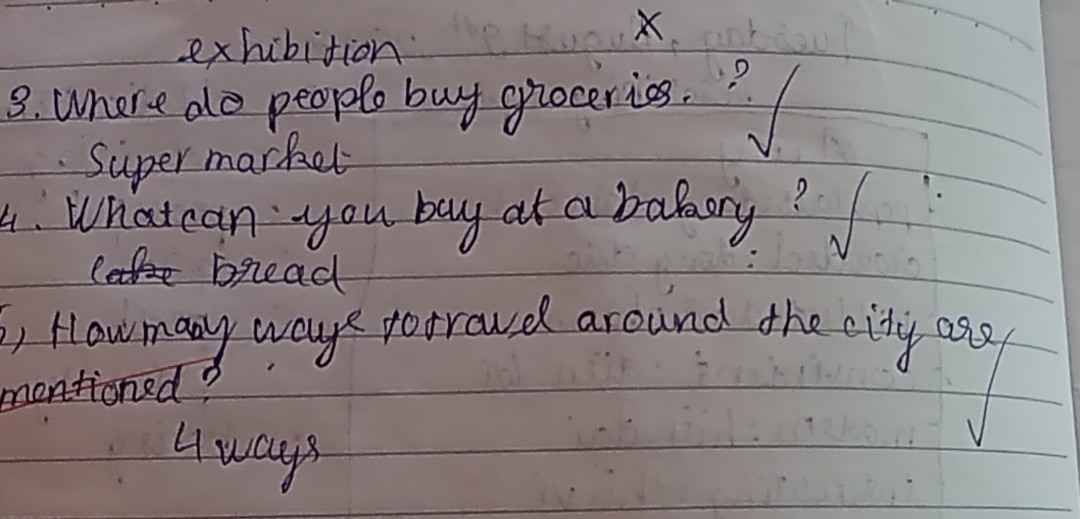 exhibition
3. Where do people buy groceries. ?
Super market
4. What can you buy at a bakery ?
bread
5, How many ways to travel around the city are
mentioned ?
4 ways